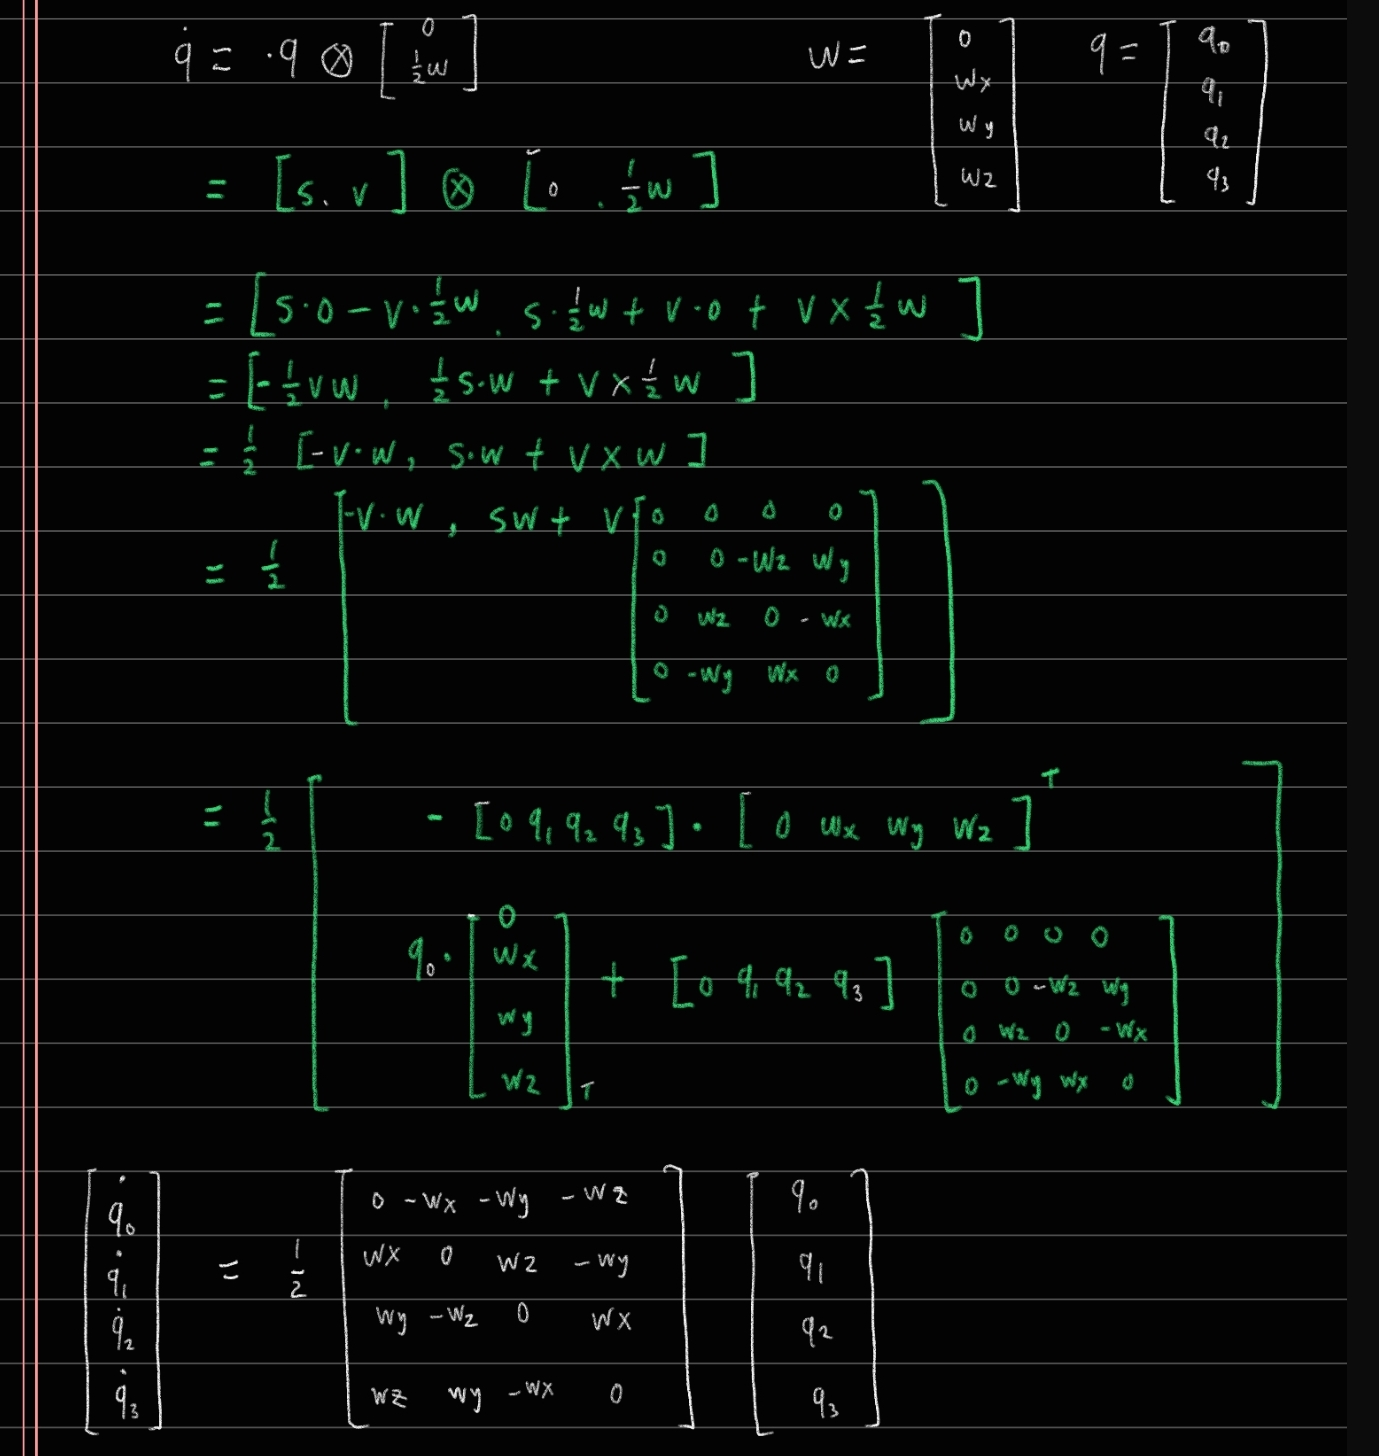 q̇ = ·q ⊗ [0 ½w] w = [0 wx wy wz] q = [q₀ q₁ q₂ q₃]
= [s. v] ⊗ [0 . ½w]
= [s·0 − v·½w . s·½w + v·0 + v × ½w]
= [−½vw , ½s·w + v × ½w]
= ½ [−v·w, s·w + v × w]
= ½ [−v·w , sw + v [0 0 0 0
0 0 −wz wy
0 wz 0 −wx
0 −wy wx 0]]
= ½ [ − [0 q₁ q₂ q₃] · [0 wx wy wz]ᵀ
q₀· [0 wx wy wz]ᵀ + [0 q₁ q₂ q₃] [0 0 0 0
0 0 −wz wy
0 wz 0 −wx
0 −wy wx 0]]
[q̇₀ q̇₁ q̇₂ q̇₃] = ½ [0 −wx −wy −wz
wx 0 wz −wy
wy −wz 0 wx
wz wy −wx 0] [q₀ q₁ q₂ q₃]